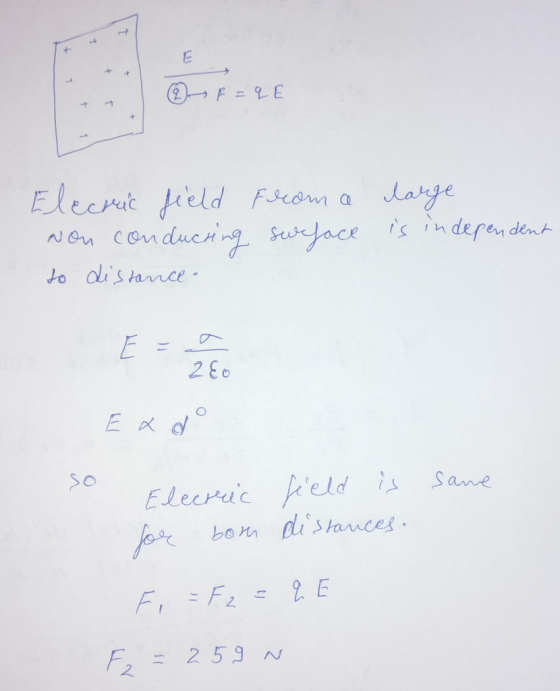 E
q → F = q E
Electric field From a large
Non conducting surface is independent
to distance.
E = σ / 2ε0
E ∝ d⁰
so
Electric field is same
for both distances.
F₁ = F₂ = q E
F₂ = 259 N